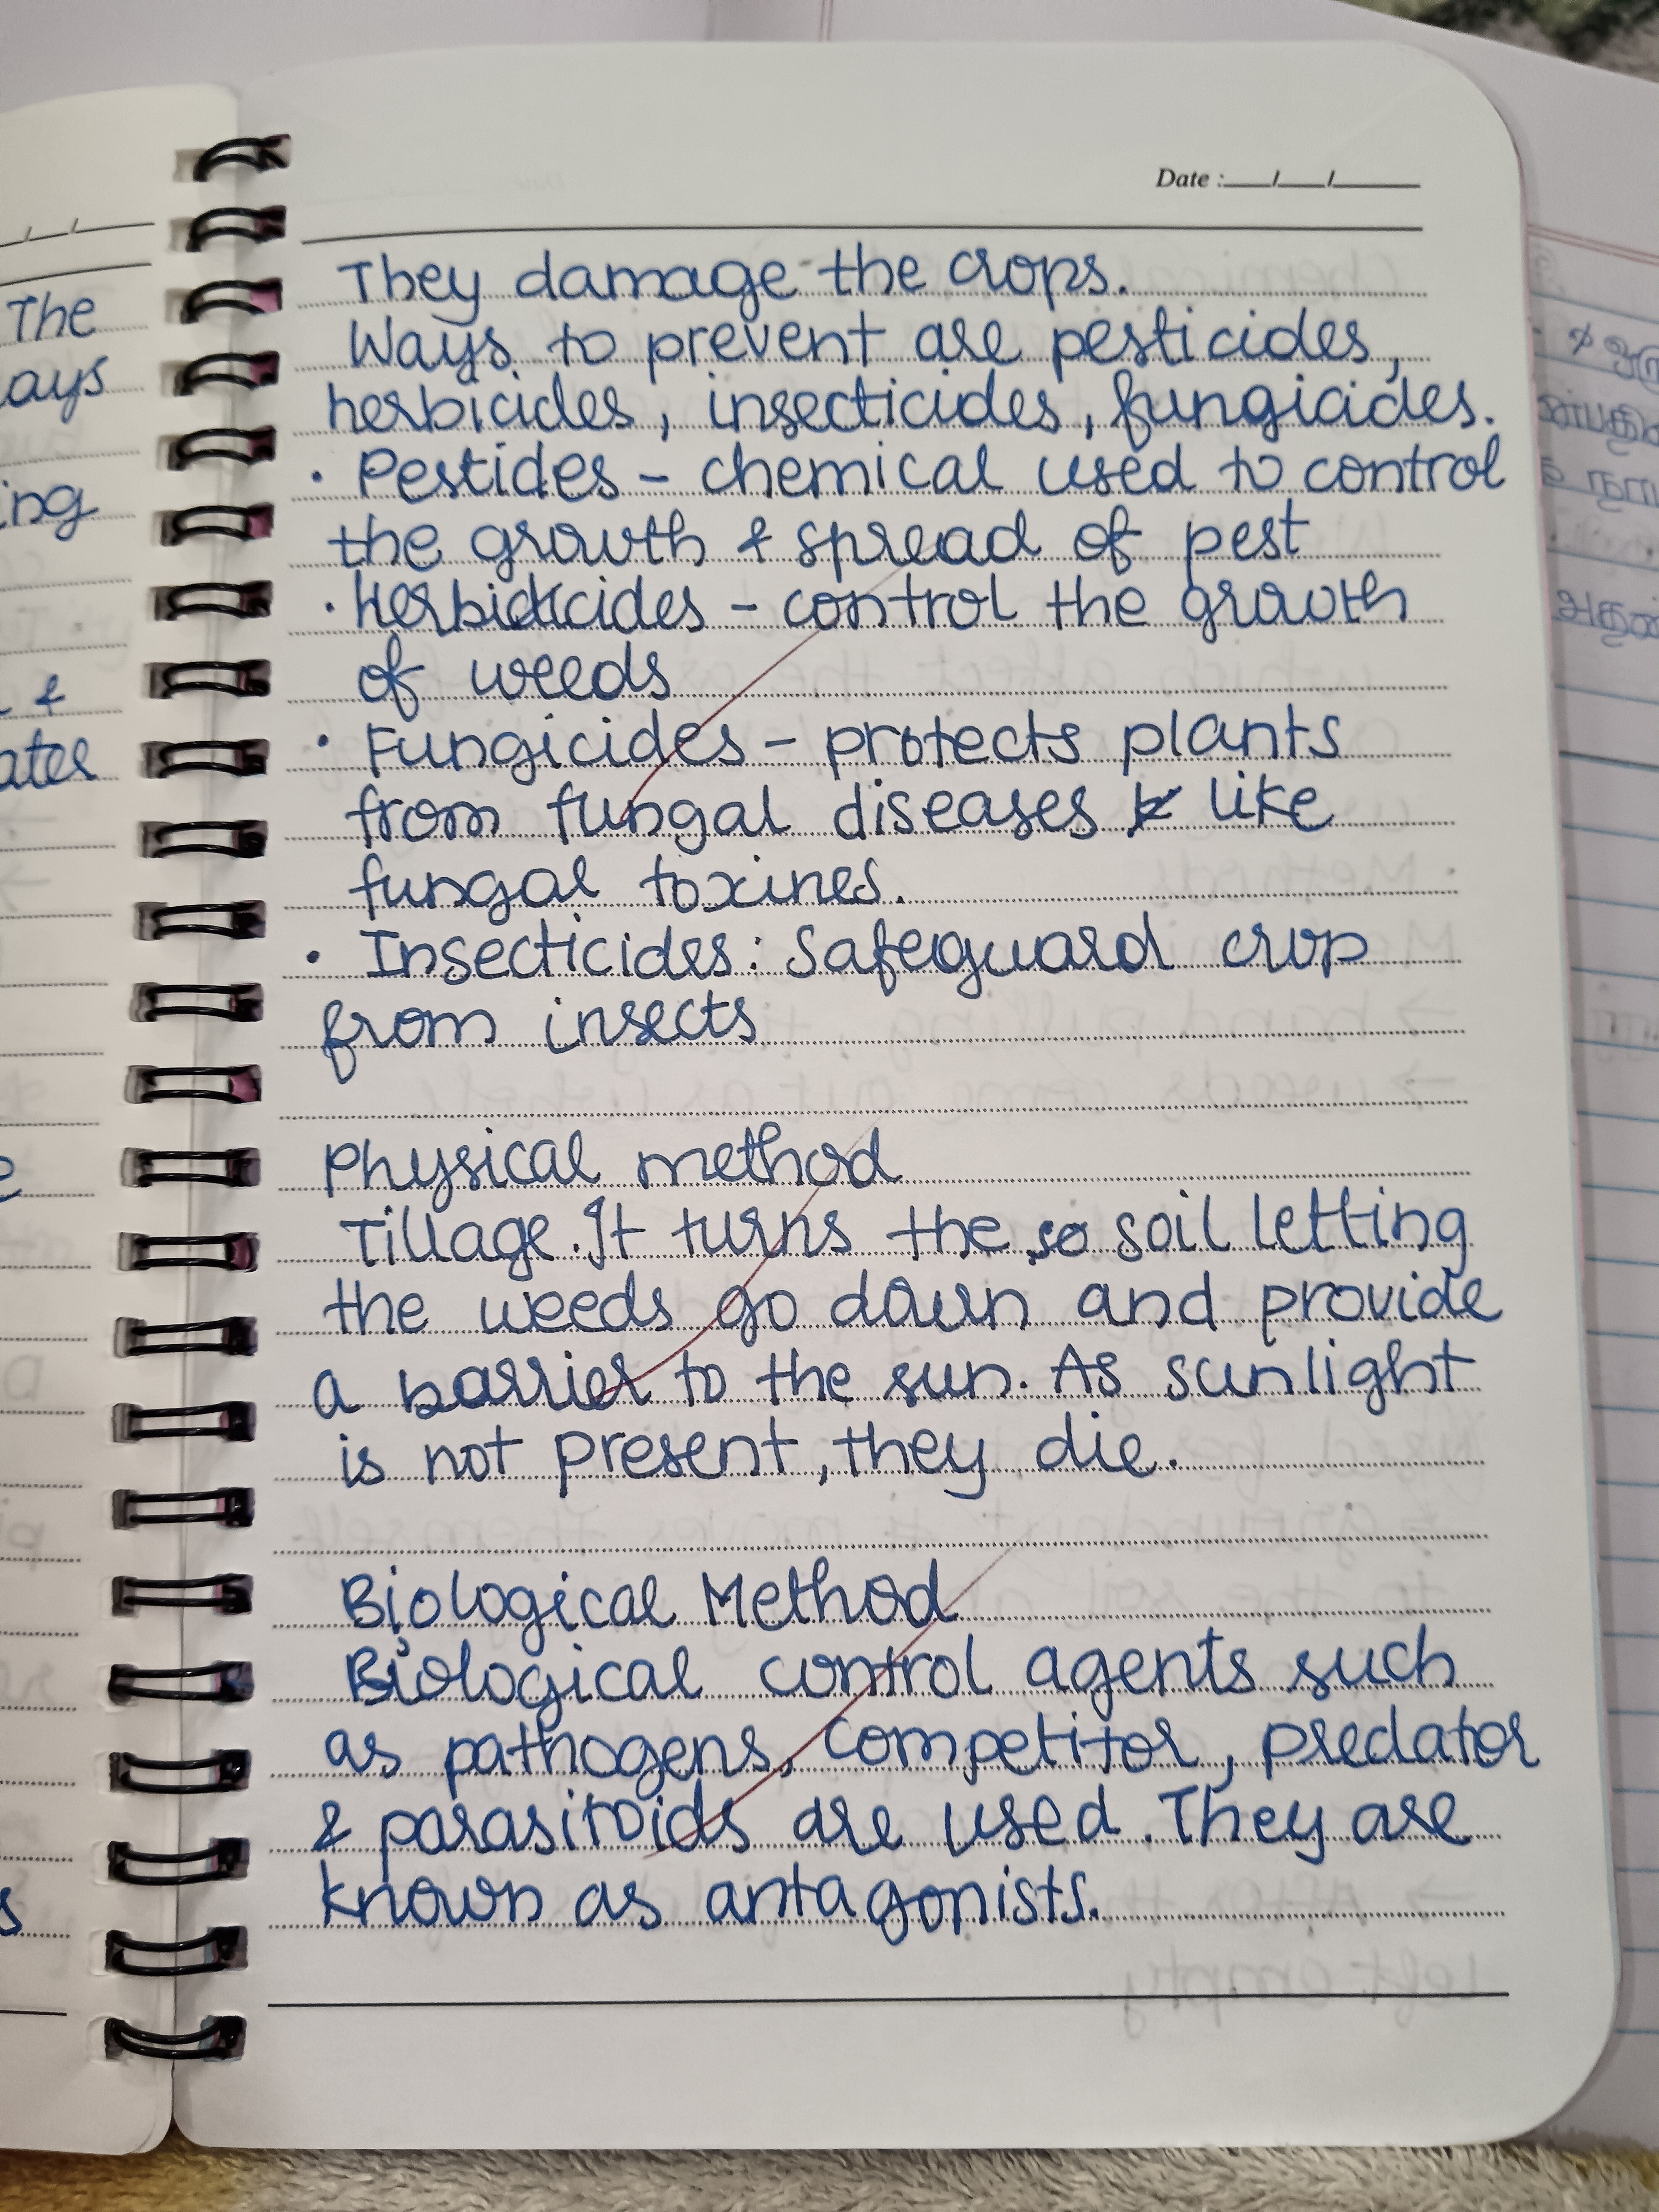 Date :___/___/___
They damage the crops.
Ways to prevent are pesticides,
herbicides, insecticides, fungicides.
• Pestides – chemical used to control
the growth & spread of pest
• Herbidicides – control the growth
of weeds
• Fungicides – protects plants
from fungal diseases like
fungal toxines.
• Insecticides: Safeguard crop
from insects
Physical method
Tillage. It turns the so soil letting
the weeds go down and provide
a barrier to the sun. As sunlight
is not present, they die.
Biological Method
Biological control agents such
as pathogens, competitor, predator
& parasitoids are used. They are
known as antagonists.
The
ays
ing
&
ates